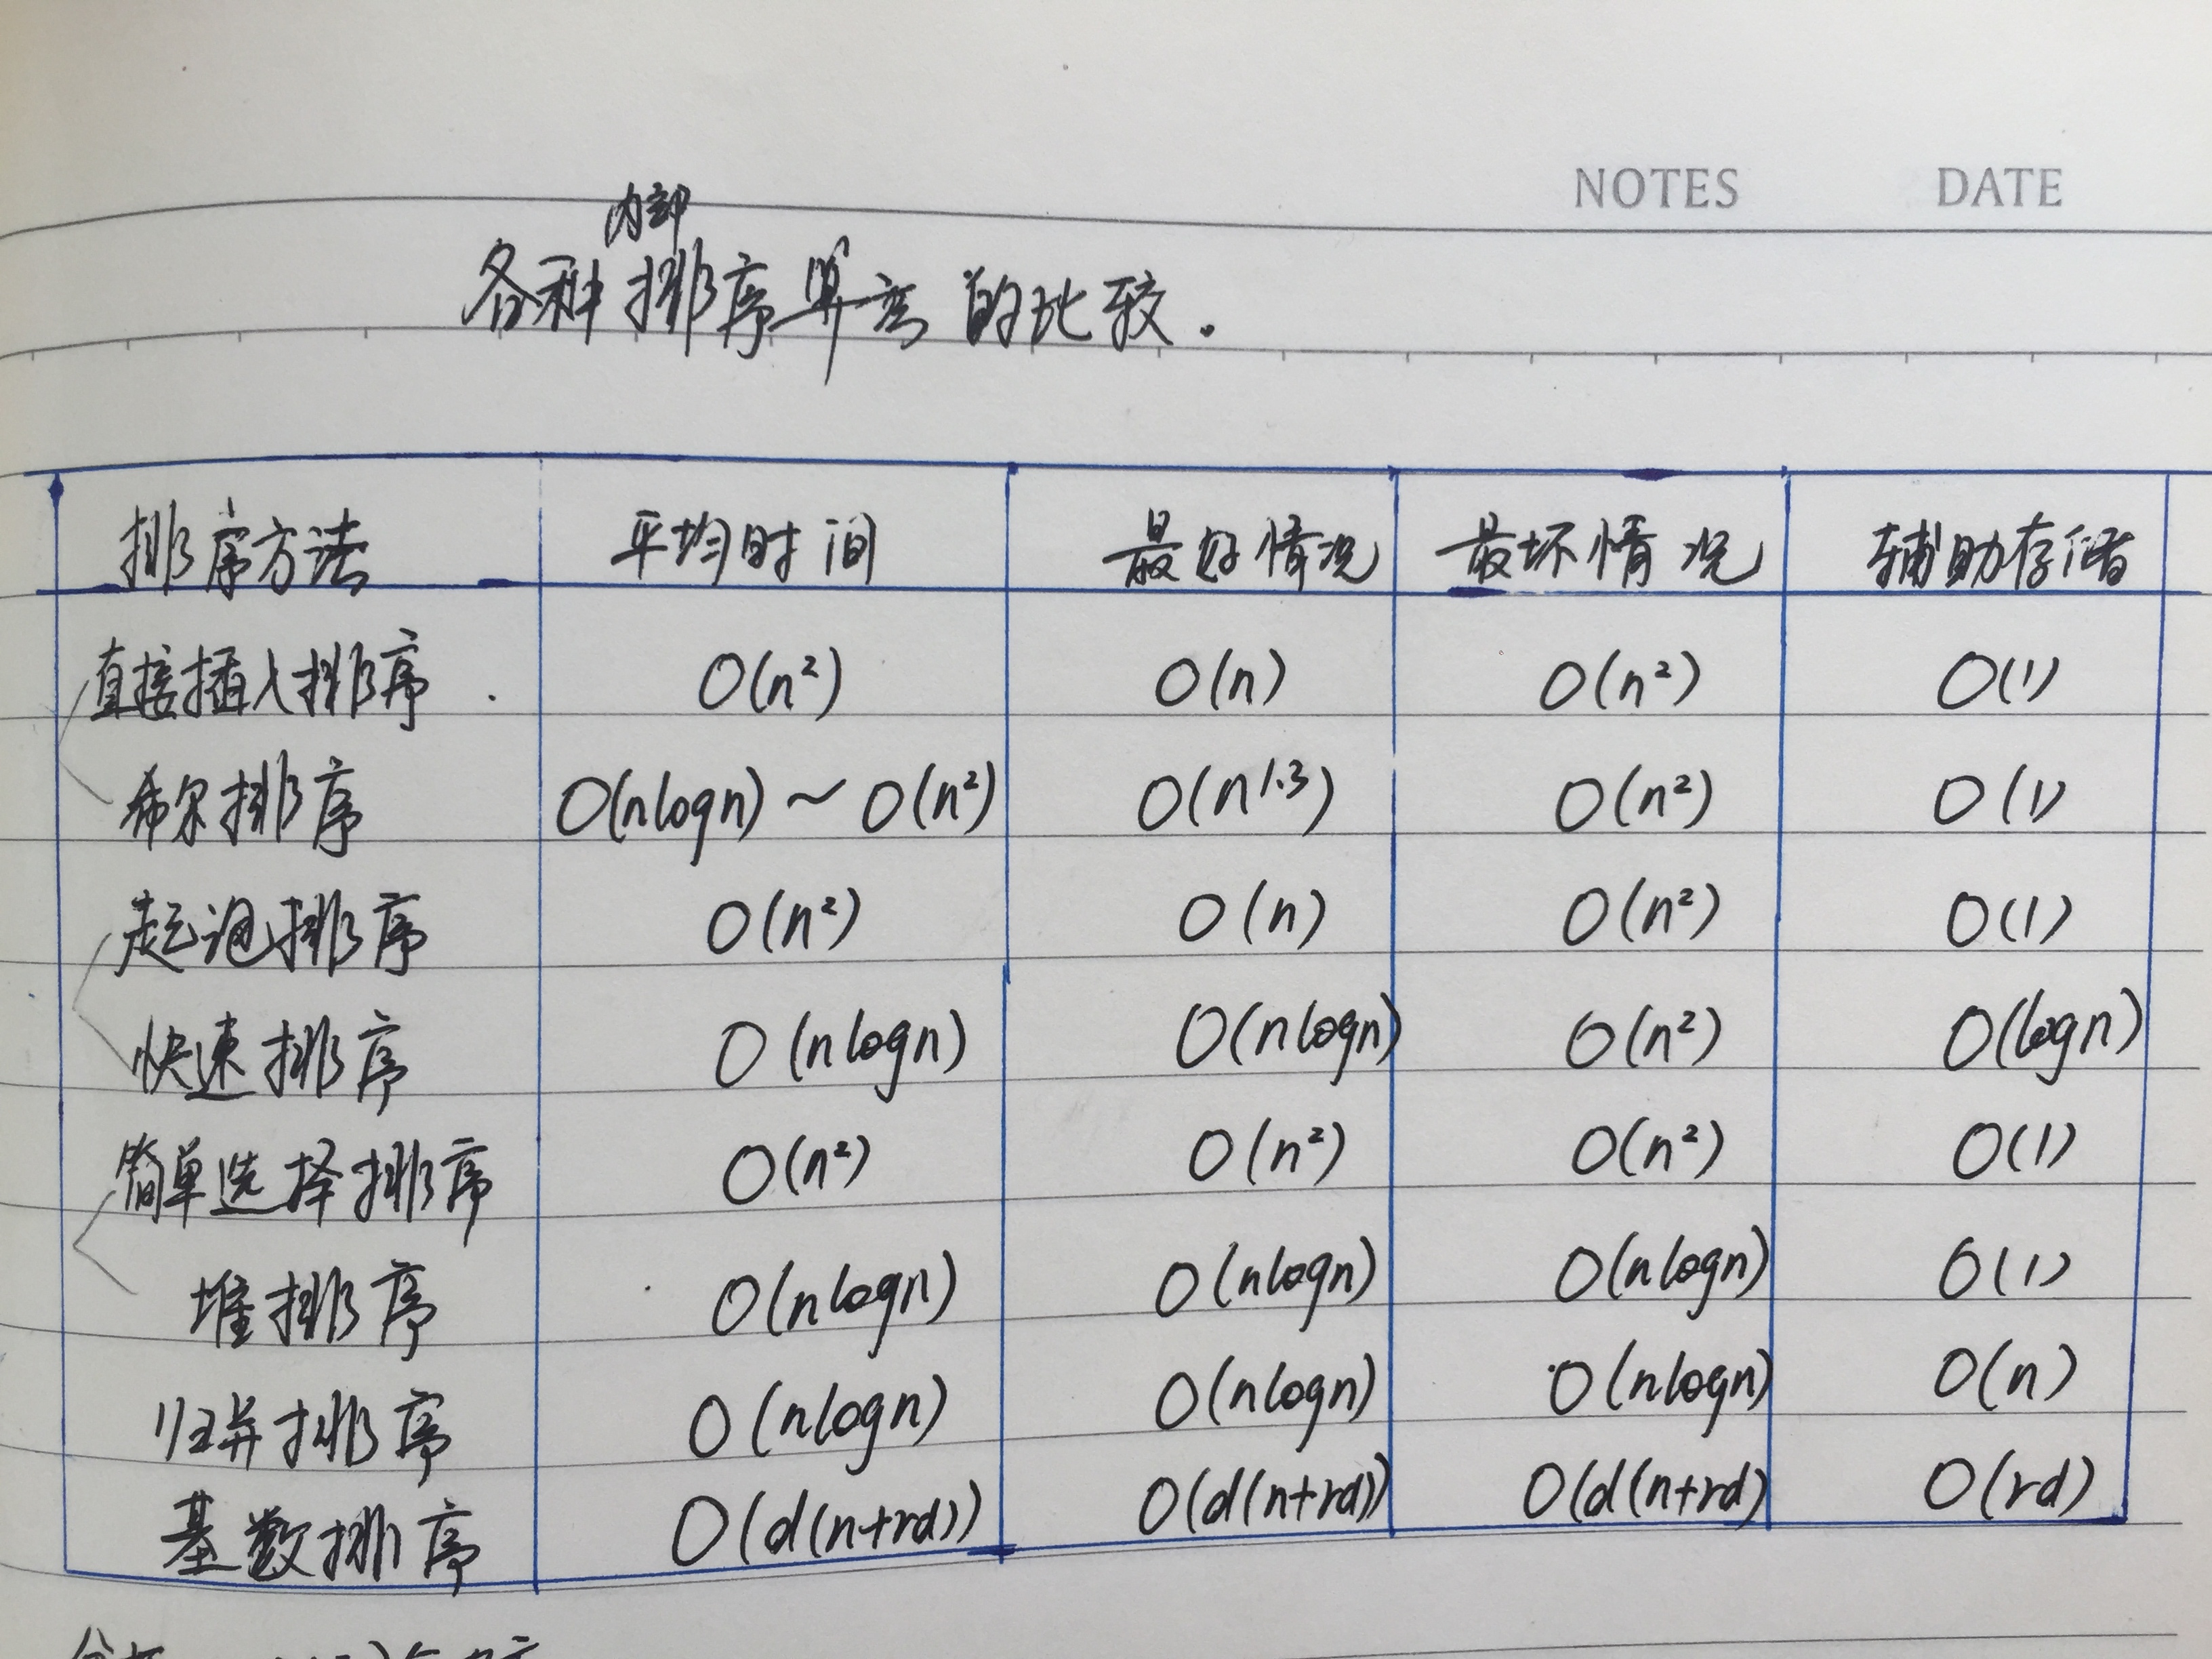 NOTES DATE
内部
各种排序算法的比较.
排序方法 平均时间 最好情况 最坏情况 辅助存储
直接插入排序 O(n²) O(n) O(n²) O(1)
希尔排序 O(nlogn)~O(n²) O(n^1.3) O(n²) O(1)
起泡排序 O(n²) O(n) O(n²) O(1)
快速排序 O(nlogn) O(nlogn) O(n²) O(logn)
简单选择排序 O(n²) O(n²) O(n²) O(1)
堆排序 O(nlogn) O(nlogn) O(nlogn) O(1)
归并排序 O(nlogn) O(nlogn) O(nlogn) O(n)
基数排序 O(d(n+rd)) O(d(n+rd)) O(d(n+rd) O(rd)